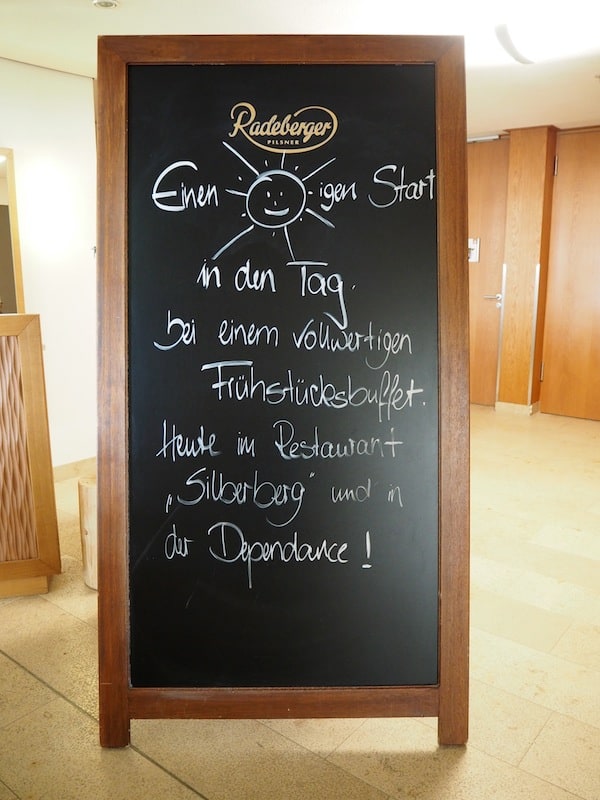 Radeberger
PILSNER
Einen igen Start
in den Tag.
bei einem vollwertigen
Frühstücksbuffet.
Heute im Restaurant
„Silberberg" und in
der Dependance!